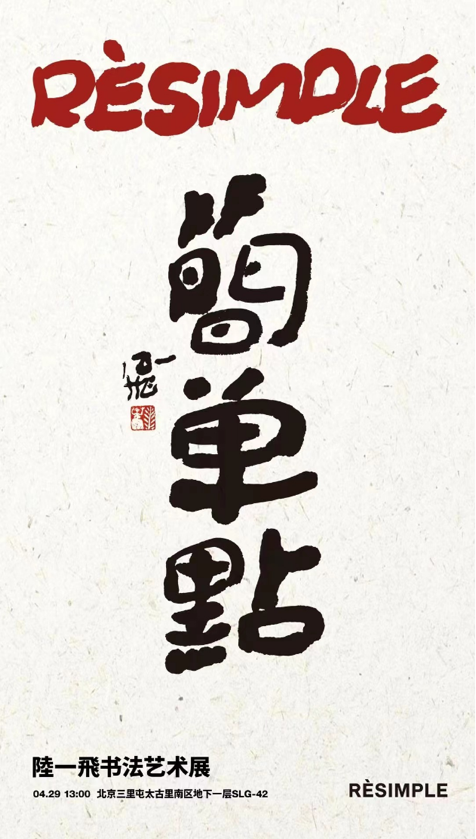 RÈSIMPLE
簡单點
陸一飛书法艺术展
04.29 13:00 北京三里屯太古里南区地下一层SLG-42
RÈSIMPLE